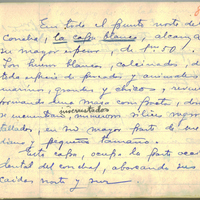 En todo el frente norte del
conchal, la capa blanca, alcanza
su mayor espesor, de 1m00.
Son humus blancos, calcinados, de
toda especie de pescados y animales
marinos, grandes y chicos, 
formando una masa compacta, donde
se encuentran incrustados numerosos sílices negros
tallados, en su mayor parte de me
dianos y pequeños tamaños.
Esta capa, ocupa la parte occi
dental del conchal, abarcando sus
caídas norte y sur.